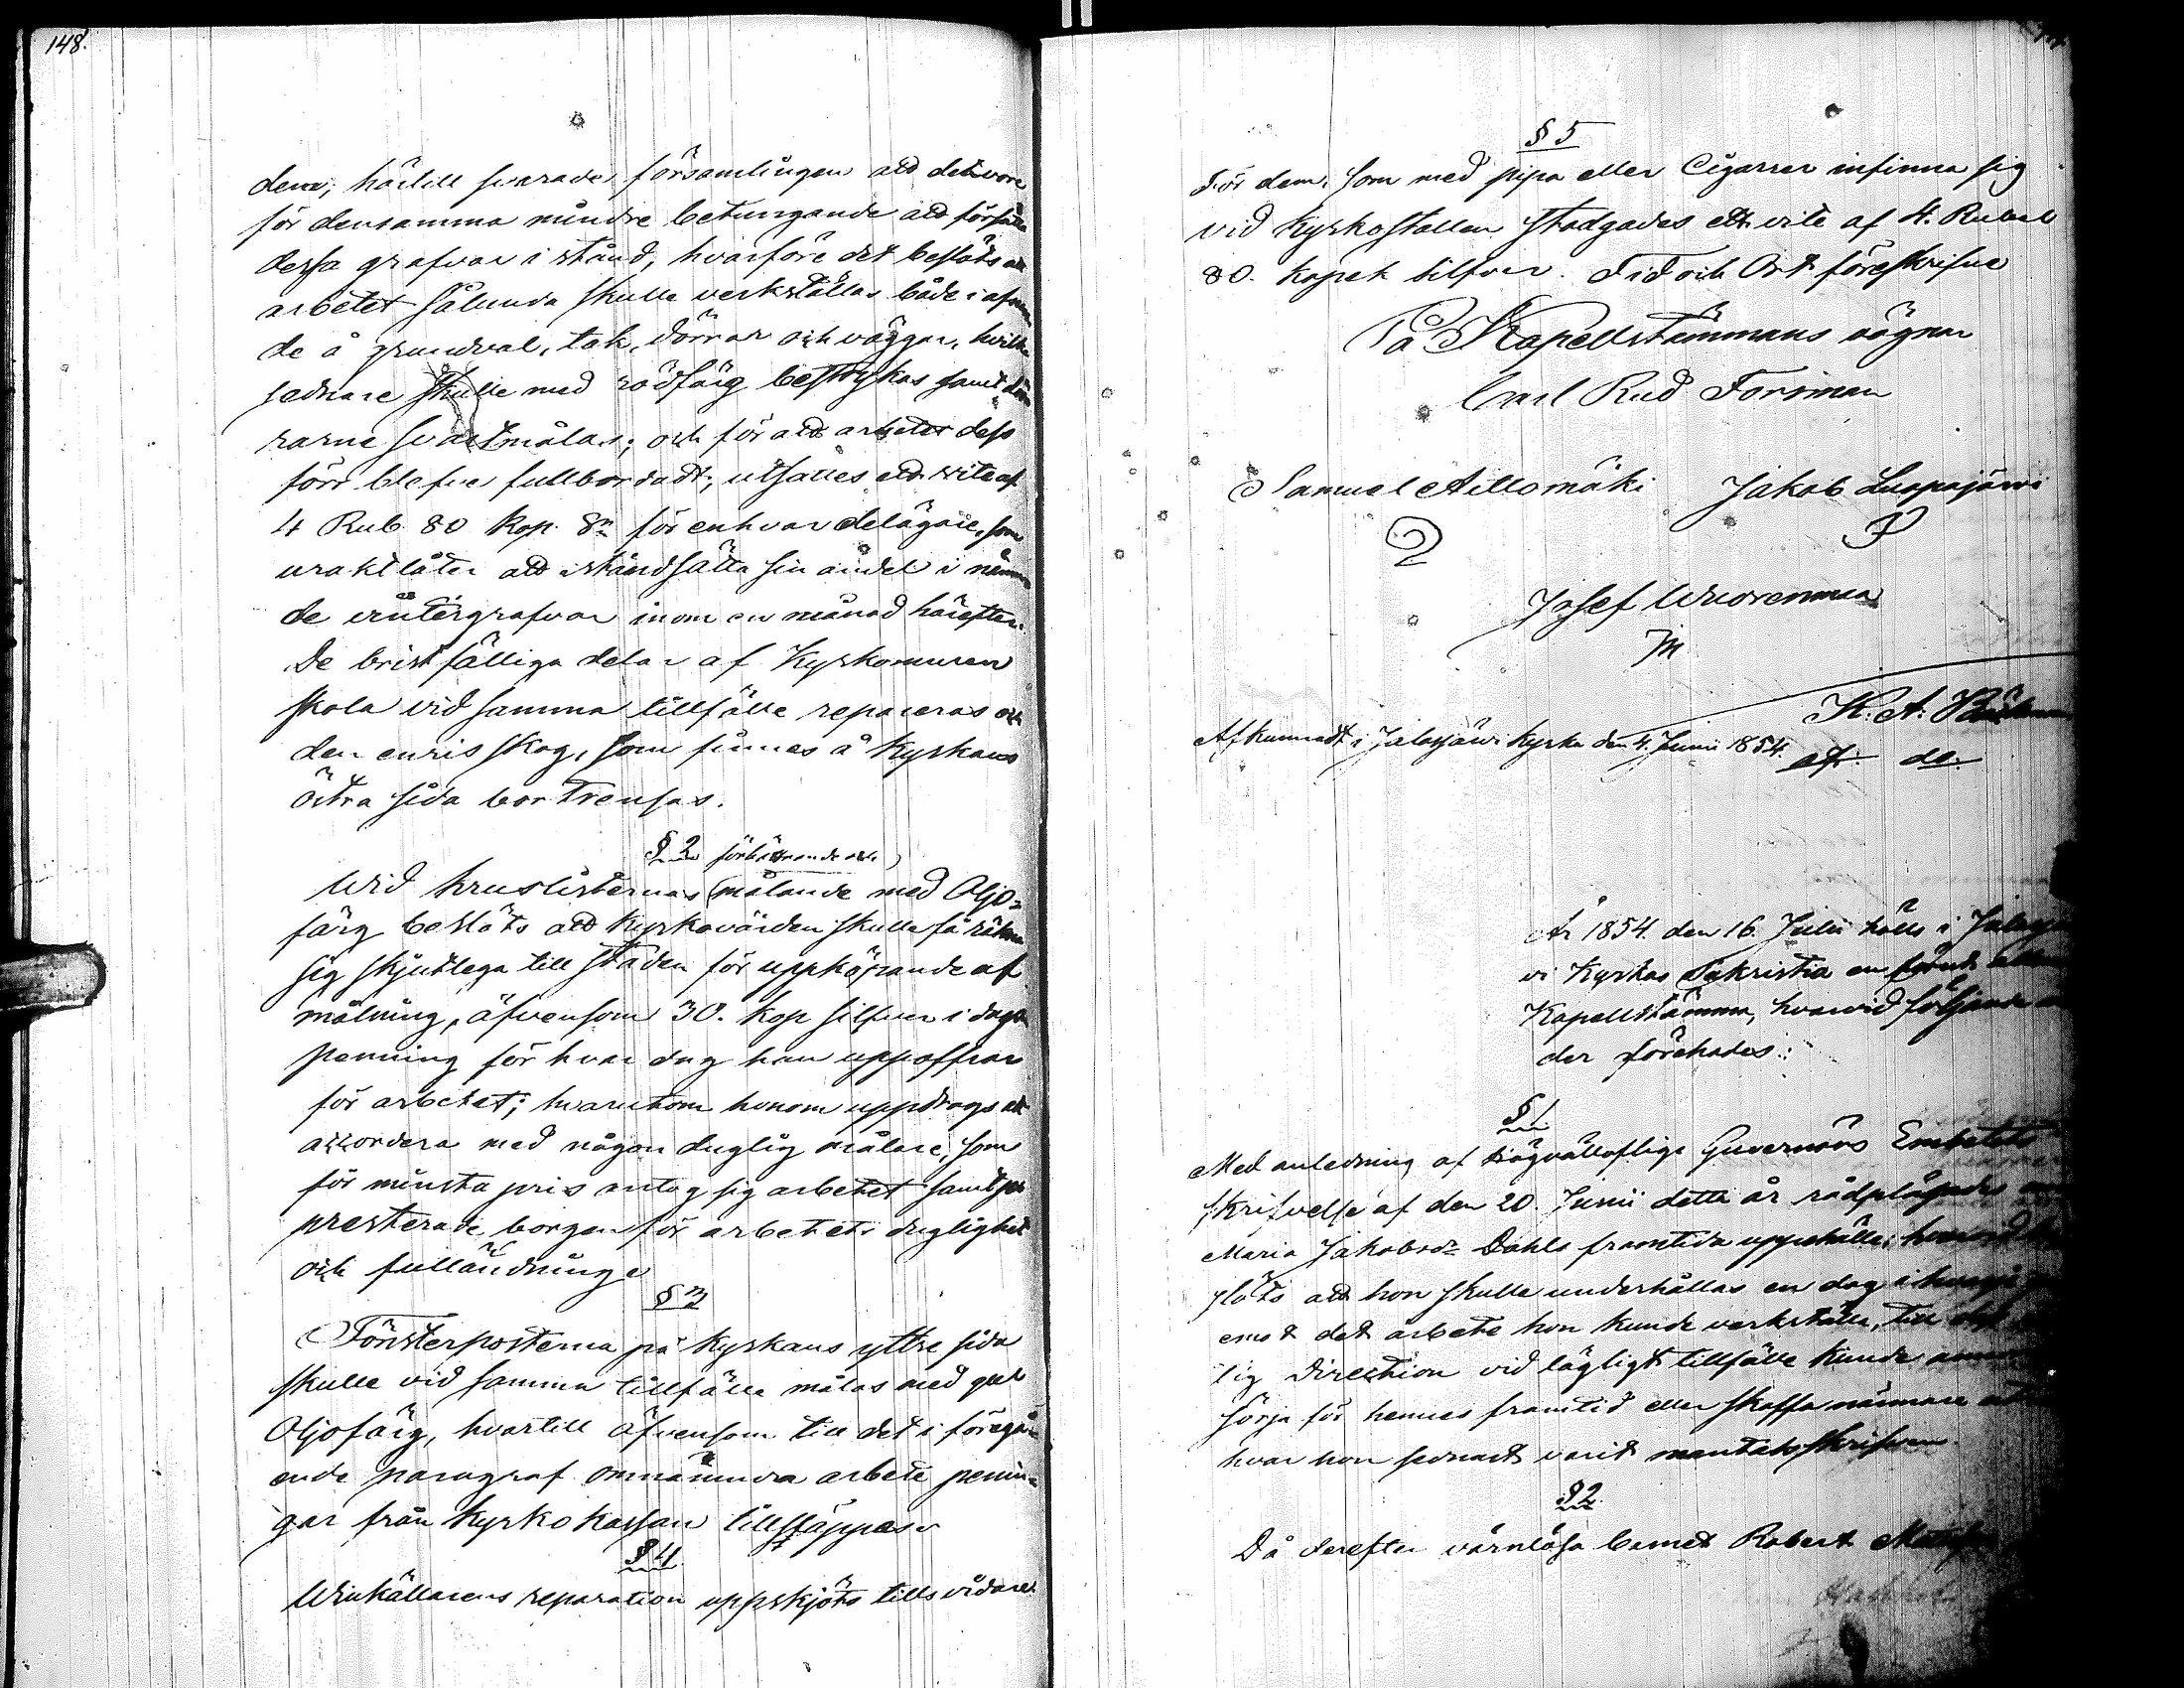 148.
dem; härtill svarade församlingen att det vore
för densamma mindre betungande att försätta
dessa grafvar i stånd, hvarföre det beslöts att
arbetet sålunda skulle verkställas både i afseen
de å grundval, tak, dörrar och väggar, hvilka
sednare skulle med rödfärg bestrykas samt dör
rarne svartmålas; och för att arbetet dess
förr blefve fullbordadt; utsattes ett vite af
4 Rub. 80 Kop. Sr för enhvar delägare, som
uraktlåter att iståndsätta sin andel i nämn
de vintergrafvar inom en månad härefter.
De bristfälliga delar af Kyrkomuren
skola vid samma tillfälle repareras och
den enrisskog, som finnes å Kyrkans
östra sida bortrensas.
§ 2 förbättrande och
Wid kruslisternas målande med Oljo-
färg beslöts att Kyrkovärden skulle få räkna
sig skjutslega till staden för uppköpande af
målning, äfvensom 30. Kop silfver i dags
penning för hvar dag han uppoffrar
för arbetet; hvarutom honom uppdrogs att
accordera med någon duglig målare, som
för minsta pris antog sig arbetet samt
presterade borgen för arbetets duglighet
och fulländninge
§ 3
Fönsterposterna på Kyrkans yttre sida
skulle vid samma tillfälle målas med gul
Oljofärg, hvartill äfvensom till det i föregå-
ende paragraf omnämnda arbete penin-
gar från Kyrkokassan tillsläppas.
§ 4
Winkällarens reparation uppskjöts tills vidare.
§ 5
För dem, som med pipa eller Cigarrer infinna sig
vid Kyrkostallen stadgades ett vite af 4. Rubel
80. Kopek silfver. Tid och Ort föreskrifne
På Kapellstämmans vägnar
Carl Rud Forsman
Samuel Aillomäki Jakob Luopajärvi
Josef Wuorenmaa
K. A.
Afkunnadt i Jalasjärvi Kyrka den 4. Junii 1854. af
År 1854. den 16. Julii hölls i
vi Kyrkas Sakristia en
Kapellstämma, hvarvid följande
der förehades:
§ 1
Med anledning af Högvällofliga Guvernörs Embetets
skrifvelse af den 20. Junii detta år rådplägades
Maria Jakobsdr Dahls framtida uppehälle; hvarvid
slöts att hon skulle underhållas en dag i
emot det arbete hon kunde verkställa, till
lig direction vid lägligt tillfälle kunde
sörja för hennes framtid eller skaffa närmare
hvar hon sednast varit mantalsskrifven.
§ 2.
Då derefter värnlösa barnet Robert